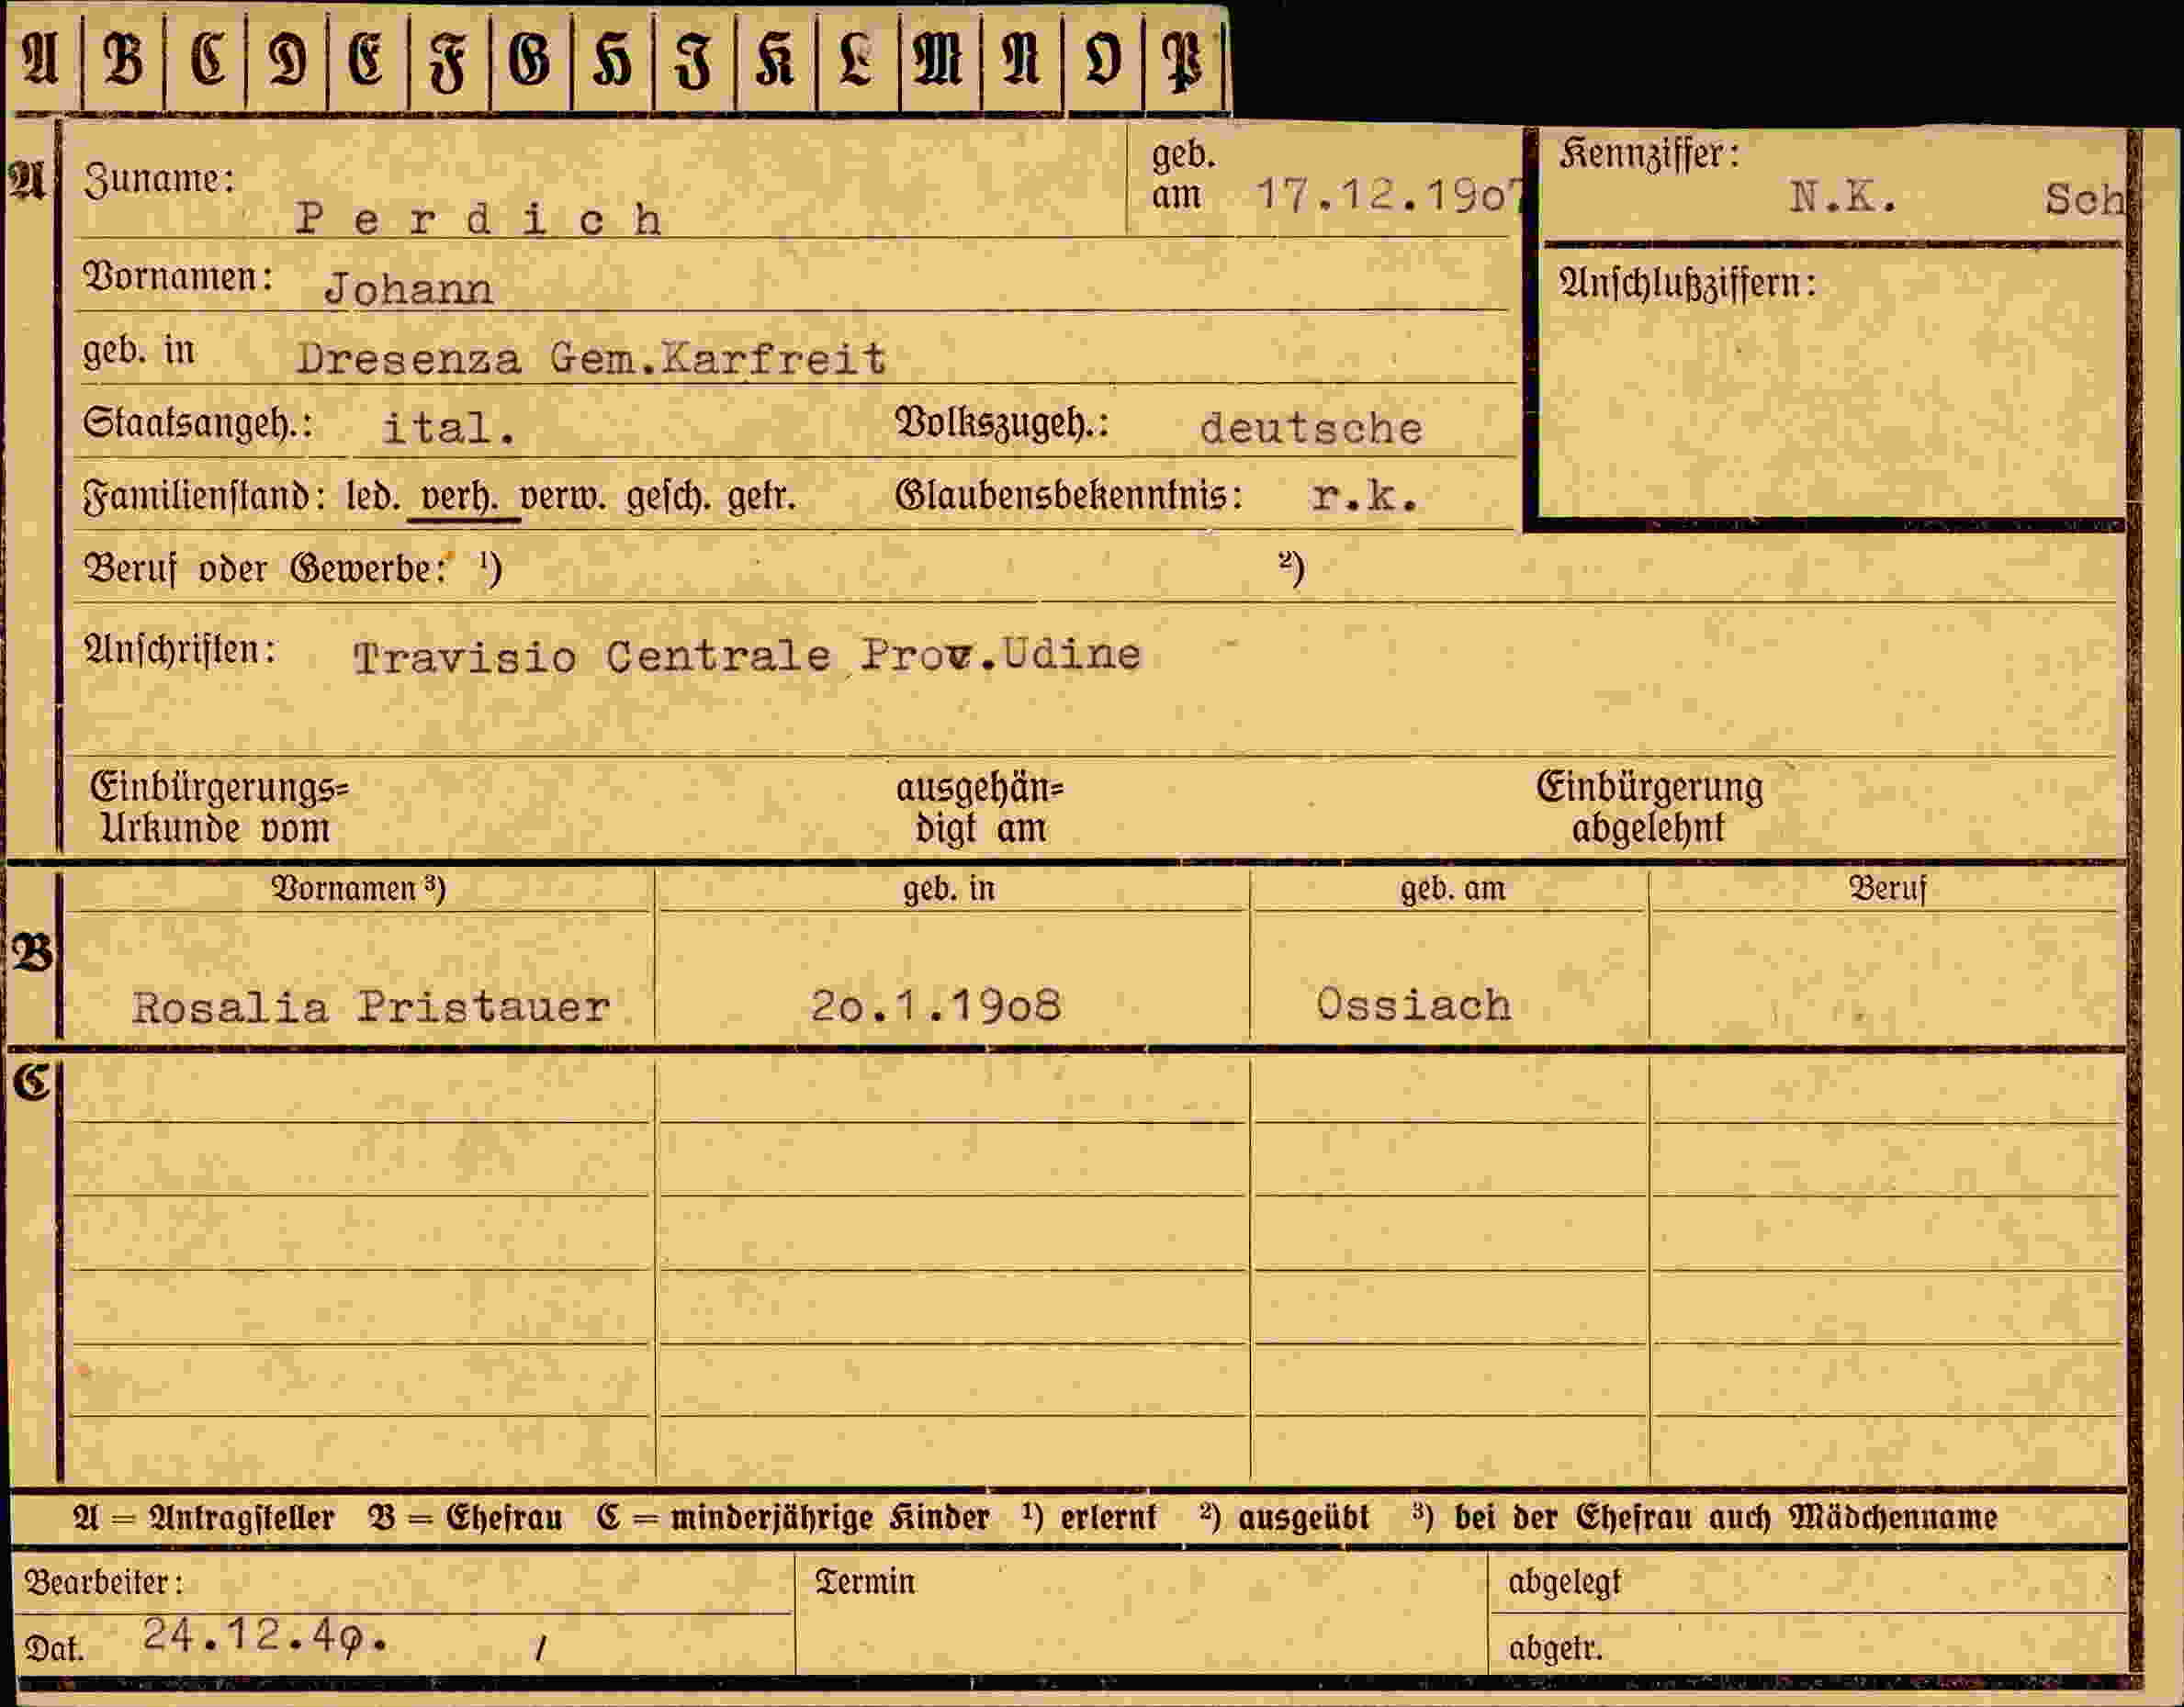 A B C D E F G H I K L M N O P
A
Zuname: Perdich
geb. am 17.12.19o7
Kennziffer: N.K. Sch
Vornamen: Johann
Anschlußziffern:
geb. in Dresenza Gem.Karfreit
Staatsangeh.: ital. Volkszugeh.: deutsche
Familienstand: led. verh. verw. gesch. getr. Glaubensbekenntnis: r.k.
Beruf oder Gewerbe: ¹) ²)
Anschriften: Travisio Centrale Prov.Udine
Einbürgerungs= Urkunde vom
ausgehän= digt am
Einbürgerung abgelehnt
B
Vornamen ³) geb. in geb. am Beruf
Rosalia Pristauer 2o.1.19o8 Ossiach
C
A = Antragsteller B = Ehefrau C = minderjährige Kinder ¹) erlernt ²) ausgeübt ³) bei der Ehefrau auch Mädchenname
Bearbeiter: Termin abgelegt
Dat. 24.12.4o. / abgetr.